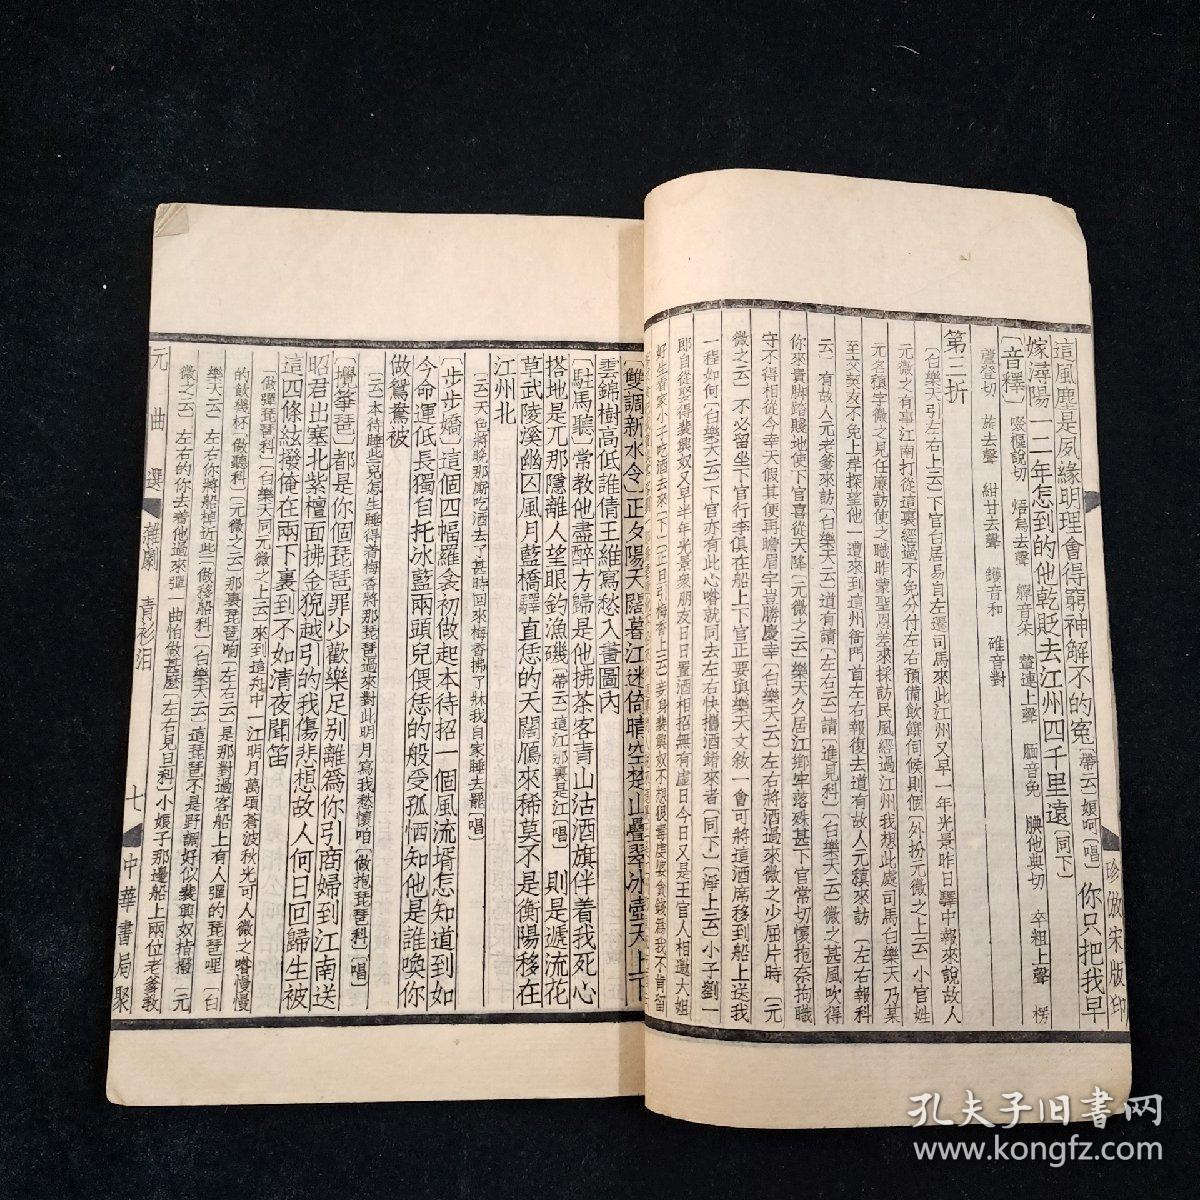 珍倣宋版印
這風塵是夙緣明理會得窮神解不的寃〔帶云〕娘呵〔唱〕你只把我早
嫁潯陽一二年怎到的他乾貶去江州四千里遠〔同下〕
〔音釋〕
蘆登切 旋去聲 紺甘去聲 鑊音和 碓音對
第三折
〔白樂天引左右上云〕下官白居易自左遷司馬來此江州又早一年光景昨日驛中報來說故人
元微之有事江南打從這裏經過不免分付左右預備飲饌伺候則個〔外扮元微之上云〕小官姓
元名稹字微之見任廉訪使之職昨蒙聖恩差來採訪民風經過江州我想此處司馬白樂天乃某
至交契友不免上岸探望他一遭來到這州衙門首左右報復去道有故人元稹來訪〔左右報科
云〕有故人元老爹來訪〔白樂天云〕道有請〔左右云〕請〔進見科〕〔白樂天云〕微之甚風吹得
你來貴脚踏賤地使下官喜從天降〔元微之云〕樂天久居江鄉牢落殊甚下官常切懷抱奈拘職
守不得相從今幸天假其便再瞻眉宇豈勝慶幸〔白樂天云〕左右將酒過來微之少屈片時〔元
微之云〕不必留坐下官行李俱在船上下官正要與樂天文敘一會可將這酒席移到船上送我
一程如何〔白樂天云〕下官亦有此心嗏就同去左右快攜酒餚來者〔同下〕〔淨上云〕小子劉一
郎自從娶得裴興奴又早半年光景衆朋友日日置酒相招無有虛日今日又是王官人相邀大姐
好生看家小子吃酒去來〔下〕
〔雙調新水令〕正夕陽天闊暮江迷倚晴空楚山疊翠冰壺天上下
雲錦樹高低誰倩王維寫愁入畫圖內
〔駐馬聽〕常教他盡醉方歸是他拂茶客青山沽酒旗伴着我死心
搭地是兀那隱離人望眼釣漁磯〔帶云〕這江那裏是江〔唱〕則是遞流花
草武陵溪幽囚風月藍橋驛直恁的天闊鴈來稀莫不是衡陽移在
江州北
〔云〕天色將晚那厮吃酒去了甚時回來梅香拂了牀我自家睡去罷〔唱〕
〔步步嬌〕這個四幅羅衾初做起本待招一個風流壻怎知道到如
今命運低長獨自托冰藍兩頭兒偎恁的般受孤恓知他是誰喚你
做鴛鴦被
〔云〕本待睡些兒怎生睡得着梅香將那琵琶過來對此明月寫我愁懷咱〔做抱琵琶科〕〔唱〕
〔攪箏琶〕都是你個琵琶罪少歡樂足别離爲你引商婦到江南送
昭君出塞北紫檀面拂金猊越引的我傷悲想故人何日回歸生被
這四條絃撥俺在兩下裏到不如清夜聞笛
〔做彈琵琶科〕〔白樂天同元微之上云〕來到這舟中一江明月萬頃蒼波秋光可人微之嗏慢慢
的飲幾杯〔做聽科〕〔元微之云〕那裏琵琶响〔左右云〕是那對過客船上有人彈的琵琶哩〔白
樂天云〕左右你將船棹近些〔做移船科〕〔白樂天云〕這琵琶不是野調好似裴興奴指撥〔元
微之云〕左右的你去着他過來彈一曲怕做甚麽〔左右見旦科〕小娘子那邊船上兩位老爹教
元曲選 雜劇 青衫泪 七 中華書局聚
孔夫子旧書网
www.kongfz.com